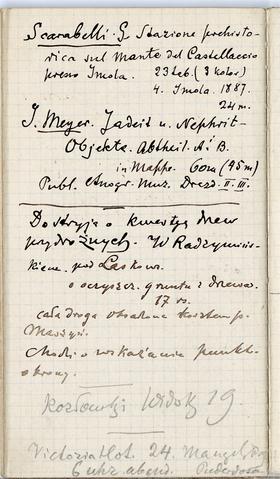 Scarabelli. G. Stazione prehisto-
rica sul Monte del Castellaccio
presso Imola. 23 tab. (3 kolor)
4. Imola. 1887.
24 m.
J. Meyer. Jadeit u. Nephrit-
Objekte. Abtheil. A. B.
in Mappe. (45 m)
Publ. Mus. Dresd. II. III.
Do stryja o kwestyą drew
przydrożnych. W Radzymiń-
skiem pod
o oczyszcz. gruntu z drzewa.
17 rs.
cała droga obsadzona kosztem p.
Chodzi o wskazanie punkt-
obrony.
Kozłowski Widok 19.
Victoria Hot. 24.
6 uhr abend.